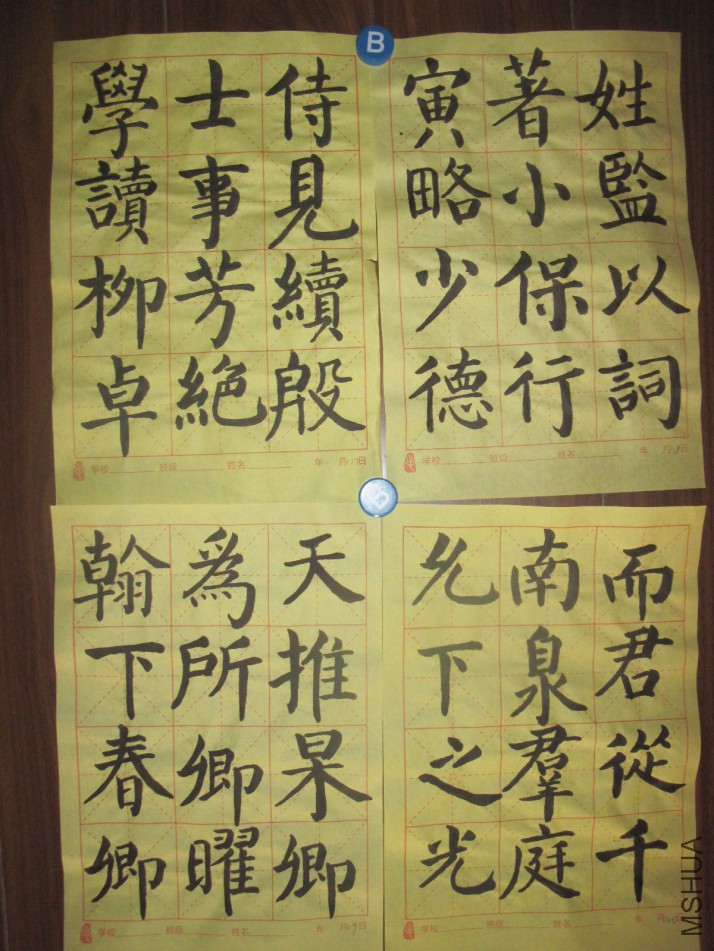 B
姓監以詞
著小保行
寅略少德
学校 班级 姓名 年 月 日
侍見續殷
士事芳絕
學讀柳卓
学校 班级 姓名 年 月 日
而君從千
南泉羣庭
允下之光
学校 班级 姓名 年 月 日
天推杲卿
爲所卿曜
翰下春卿
学校 班级 姓名 年 月 日
MSHUA